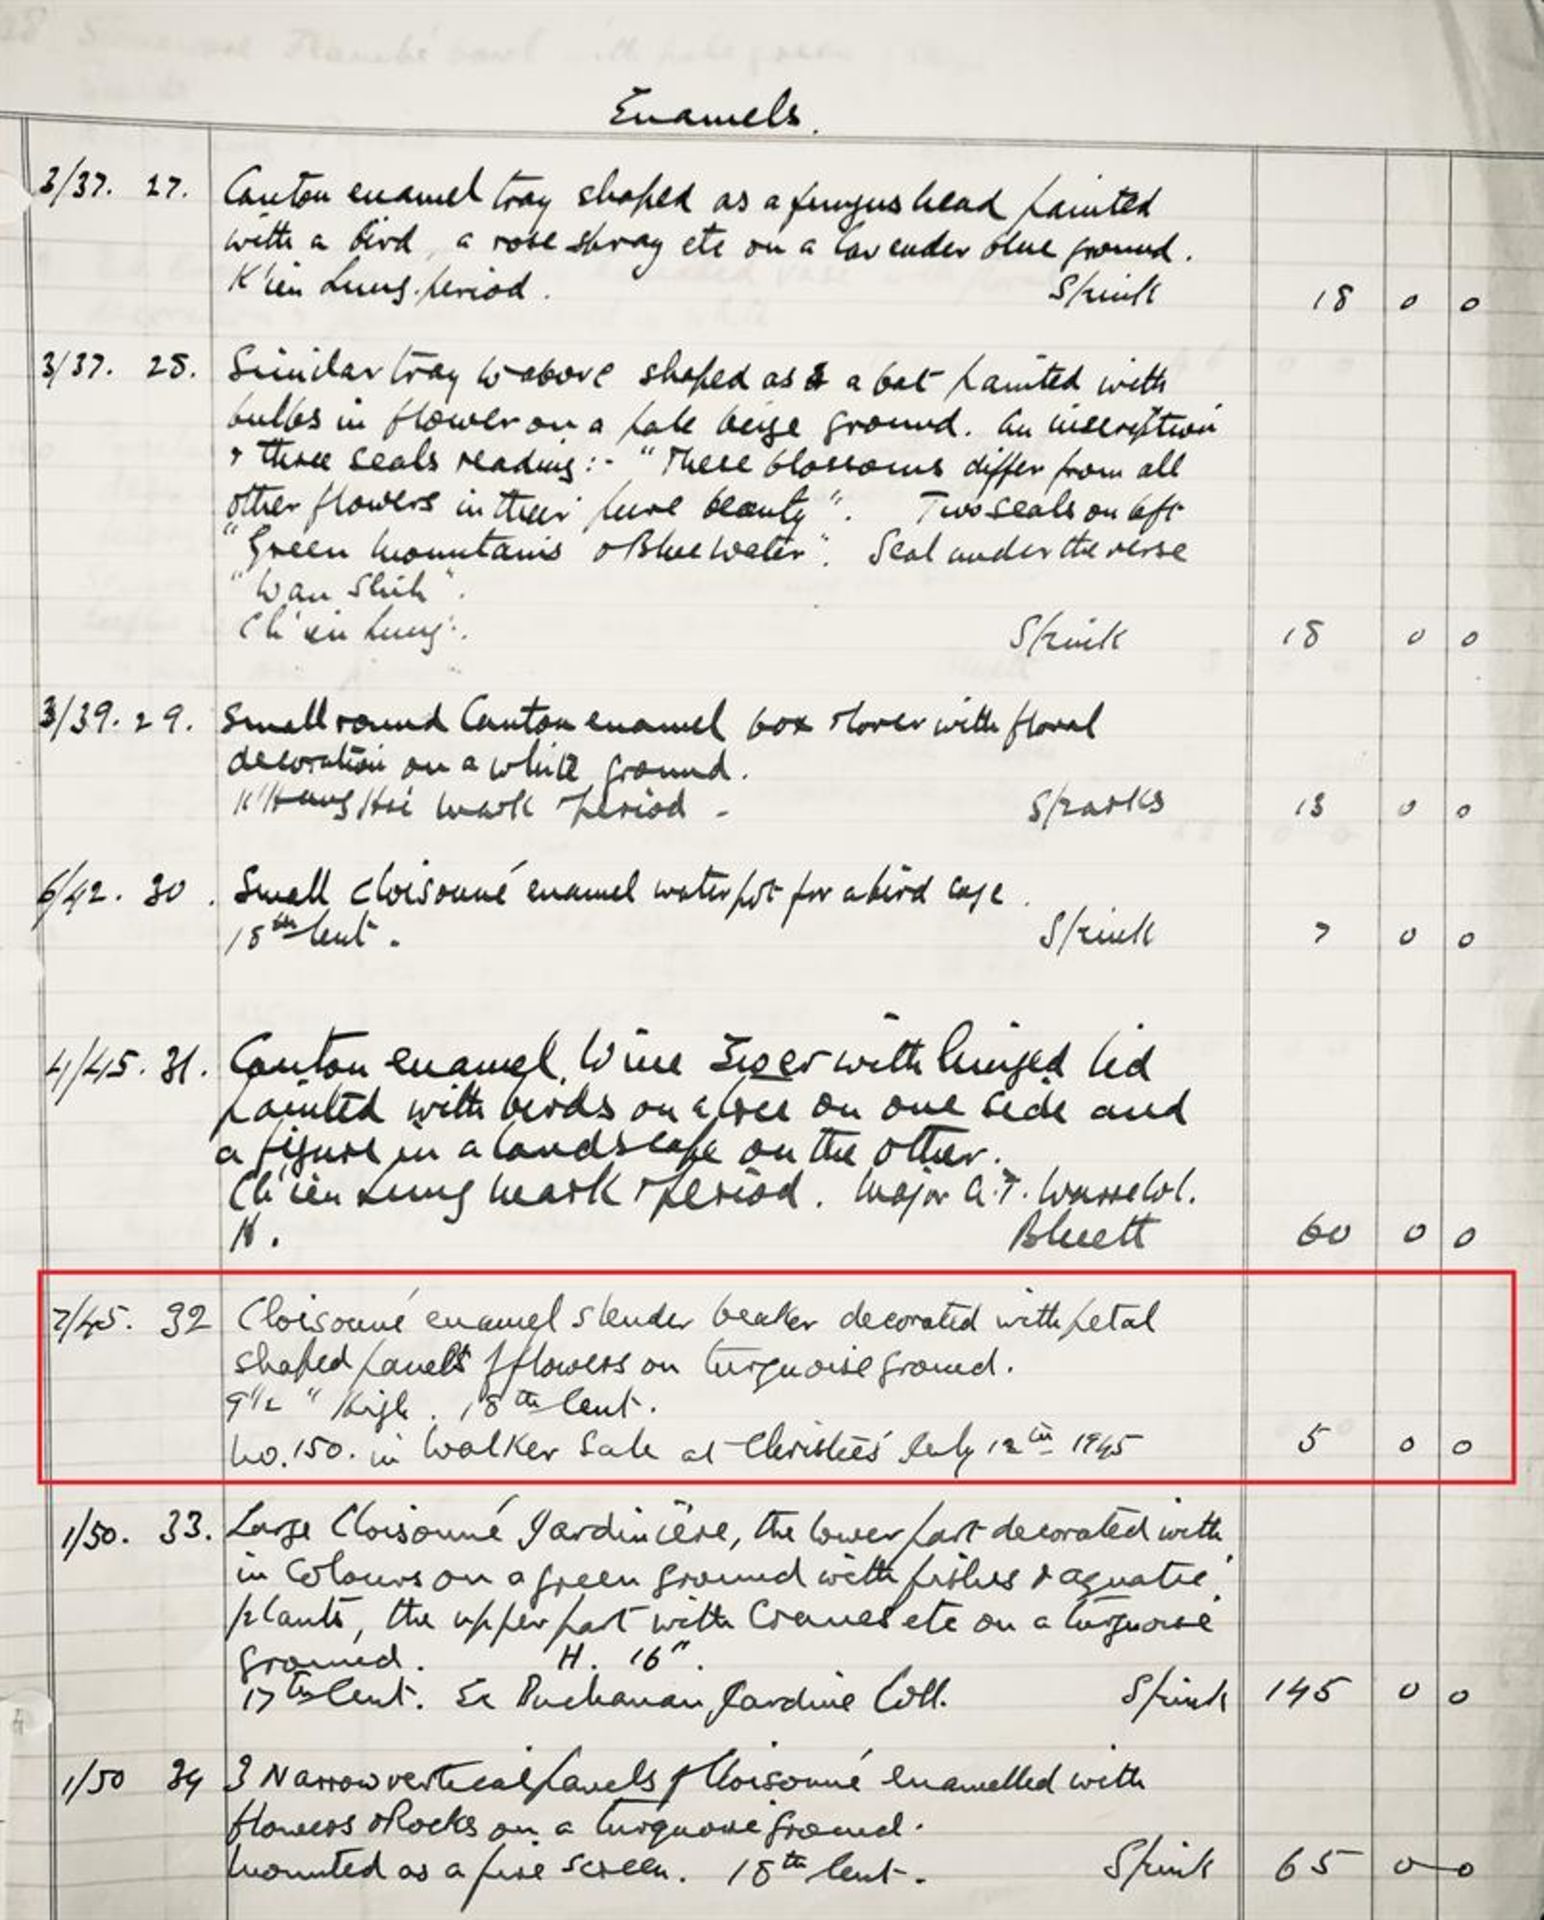 Enamels.
3/37. 27. Canton enamel tray shaped as a fungus head painted
with a bird, a rose spray etc on a lavender blue ground.
K'ien Lung period. Spink 18 0 0
3/37. 28. Similar tray to above shaped as a bat painted with
bulbs in flower on a pale beige ground. An inscription
& three seals reading:- "These blossoms differ from all
other flowers in their pure beauty". Two seals on left
"Green mountains & Blue water". Seal under the verse
"Wan Shih".
Ch'ien Lung. Spink 18 0 0
3/39. 29. Small round Canton enamel box & cover with floral
decoration on a white ground.
K'Hang Hsi mark & period - Sparks 13 0 0
6/42. 30. Small cloisonné enamel water pot for a bird cage.
18th Cent. Spink 7 0 0
4/45. 31. Canton enamel Wine Ewer with hinged lid
painted with birds on a tree on one side and
a figure in a landscape on the other.
Ch'ien Lung mark & period. Major A.T. Warre Col.
H. Bluett 60 0 0
7/45. 32 Cloisonné enamel slender beaker decorated with petal
shaped panels of flowers on turquoise ground.
9 1/2" High. 18th Cent.
No. 150. in Walker Sale at Christies' July 12th 1945 5 0 0
1/50. 33. Large Cloisonné Jardinière, the lower part decorated with
in Colours on a green ground with fishes & aquatic
plants, the upper part with Cranes etc on a turquoise
ground. H. 16".
17th Cent. Ex Buchanan Jardine Coll. Spink 145 0 0
1/50 34 3 Narrow vertical panels of Cloisonné enamelled with
flowers & Rocks on a turquoise ground.
Mounted as a fire screen. 18th Cent. Spink 65 0 0